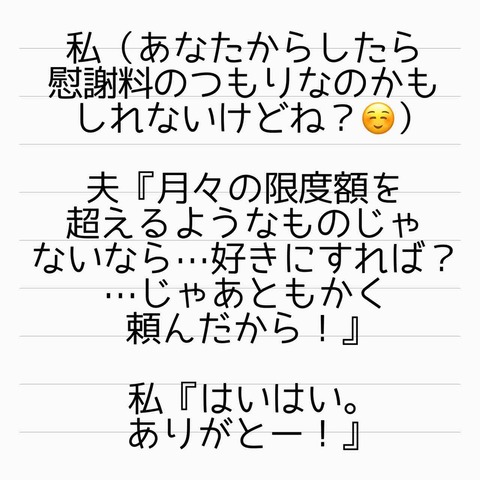 私（あなたからしたら
慰謝料のつもりなのかも
しれないけどね？☺️）
夫『月々の限度額を
超えるようなものじゃ
ないなら…好きにすれば？
…じゃあともかく
頼んだから！』
私『はいはい。
ありがとー！』